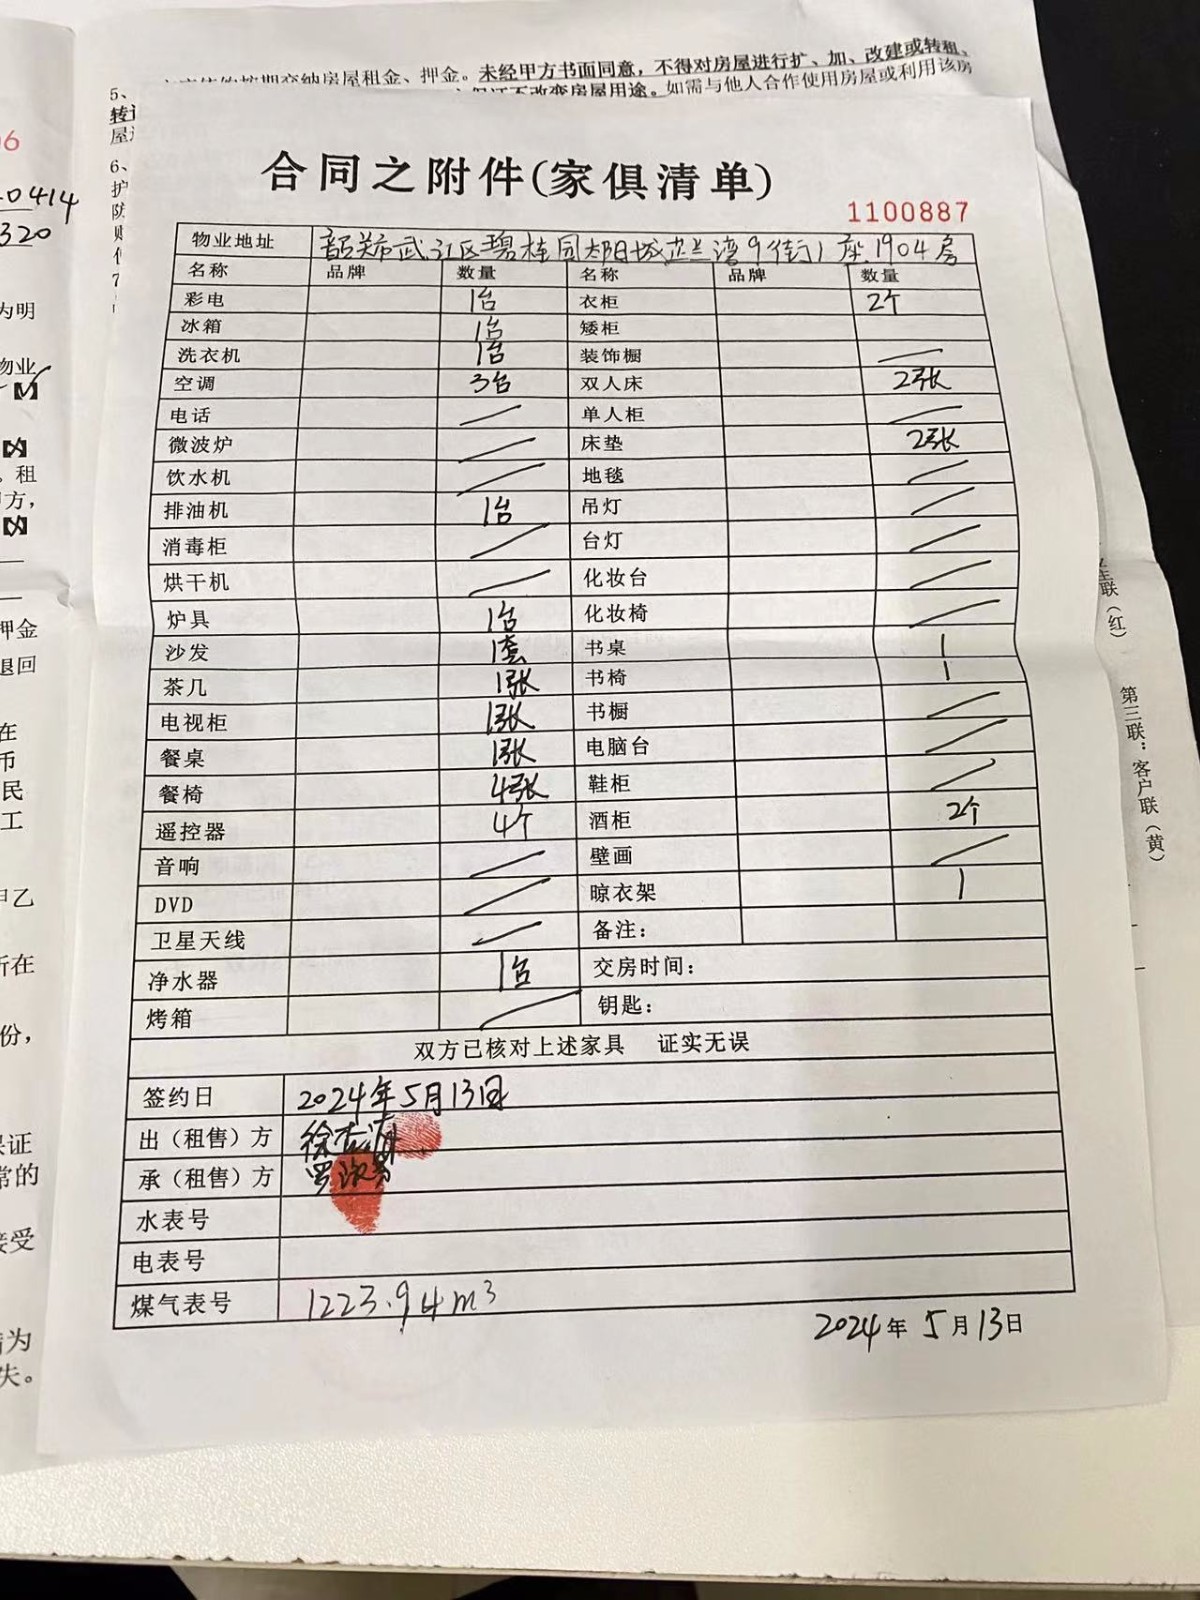 5、
按期交纳房屋租金、押金。未经甲方书面同意，不得对房屋进行扩、加、改建或转租、
不改变房屋用途。如需与他人合作使用房屋或利用该房
6、
合同之附件(家俱清单)
1100887
物业地址 韶关市武江区碧桂园太阳城芷兰湾9街1座1904房
名称 品牌 数量 名称 品牌 数量
彩电 1台 衣柜 2个
冰箱 1台 矮柜
洗衣机 1台 装饰橱 —
空调 3台 双人床 2张
电话 — 单人柜 —
微波炉 — 床垫 2张
饮水机 — 地毯 —
排油机 1台 吊灯 —
消毒柜 — 台灯 —
烘干机 — 化妆台 —
炉具 1台 化妆椅 —
沙发 1套 书桌 1
茶几 1张 书椅 1
电视柜 1张 书橱 —
餐桌 1张 电脑台 —
餐椅 4张 鞋柜 —
遥控器 4个 酒柜 2个
音响 — 壁画 —
DVD — 晾衣架 1
卫星天线 — 备注：
净水器 1台 交房时间：
烤箱 — 钥匙：
双方已核对上述家具 证实无误
签约日 2024年5月13日
出（租售）方 徐
承（租售）方 罗
水表号
电表号
煤气表号 1223.94m³
2024年5月13日
0414
320
为明
物业
租
甲方，
押金
退回
在
币
民
工
甲乙
所在
份，
保证
常的
接受
为
失。
联（红）
第三联：客户联（黄）